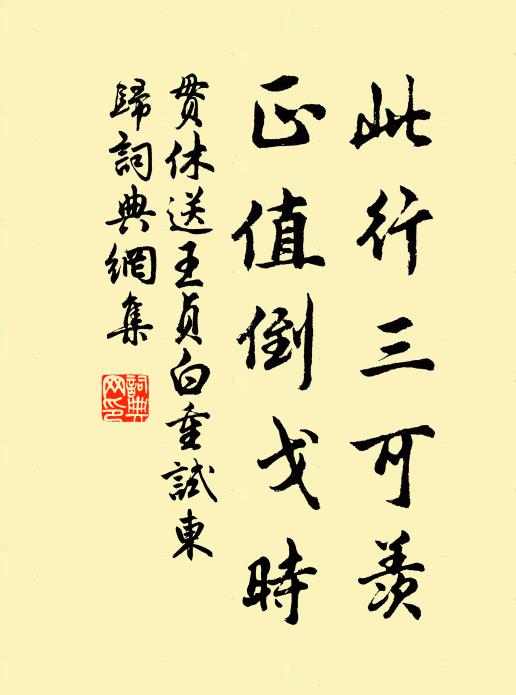 此行三可羨
正值倒戈時
貫休送王貞白重試東
歸詞典網集
詞典
网印